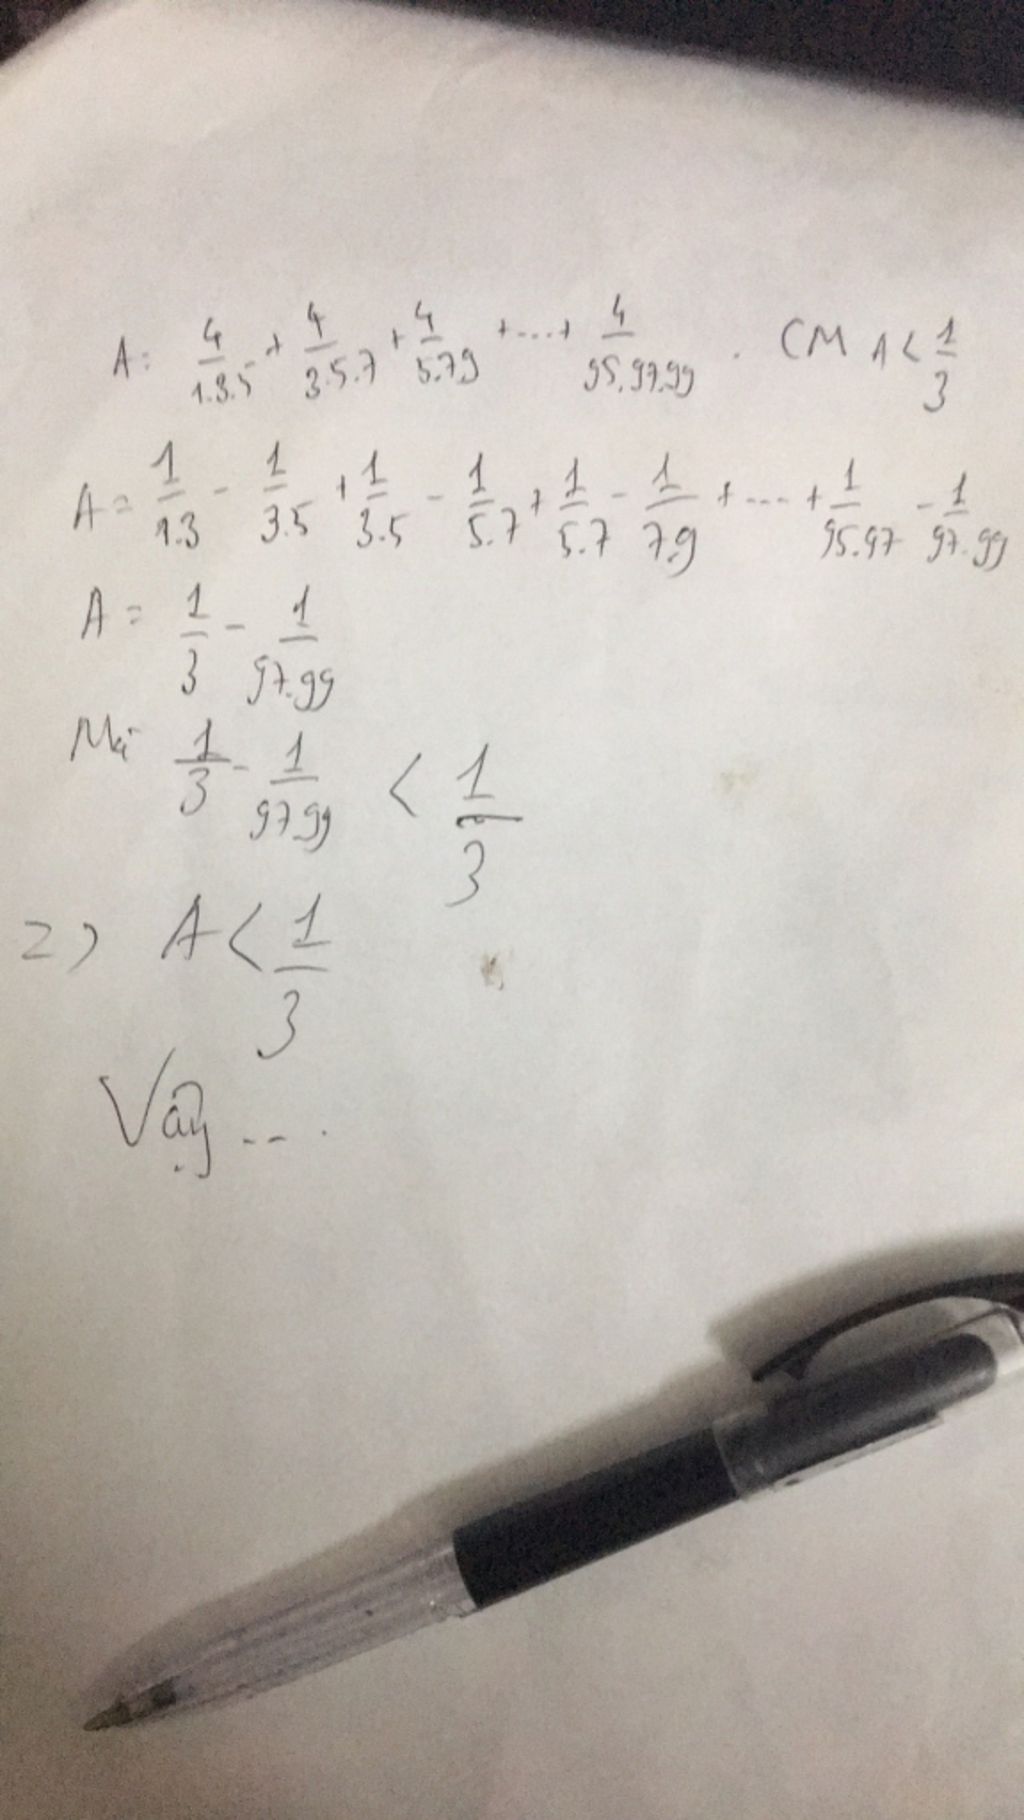 A = 4/1.3.5 + 4/3.5.7 + 4/5.7.9 + ... + 4/95.97.99 . CM A < 1/3
A = 1/1.3 - 1/3.5 + 1/3.5 - 1/5.7 + 1/5.7 - 1/7.9 + ... + 1/95.97 - 1/97.99
A = 1/3 - 1/97.99
Mà 1/3 - 1/97.99 < 1/3
=> A < 1/3
Vậy ....